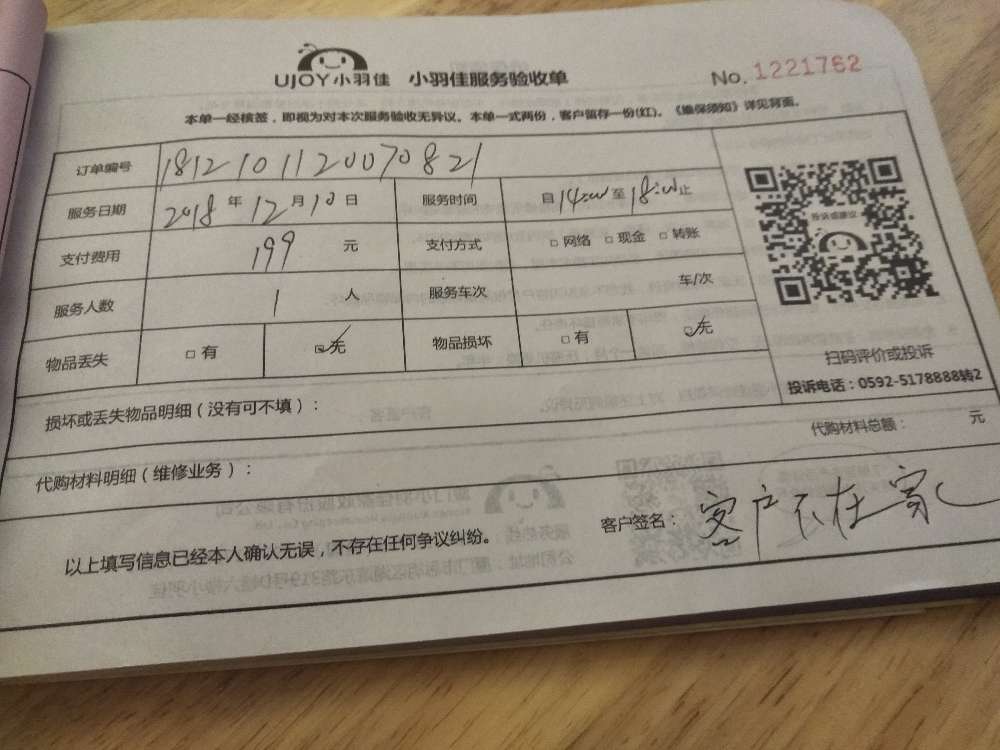 UJOY小羽佳 小羽佳服务验收单 No. 1221762
本单一经核签，即视为对本次服务验收无异议。本单一式两份，客户留存一份(红)。《维保须知》详见背面。
订单编号 1812101120070821
服务日期 2018年12月10日 服务时间 自14:00至18:00止
支付费用 199 元 支付方式 □网络 □现金 □转账
服务人数 1 人 服务车次 车/次
物品丢失 □有 ☑无 物品损坏 □有 ☑无
投诉或建议
扫码评价或投诉
投诉电话：0592-5178888转2
损坏或丢失物品明细（没有可不填）：
代购材料明细（维修业务）： 代购材料总额： 元
以上填写信息已经本人确认无误，不存在任何争议纠纷。 客户签名： 客户不在家